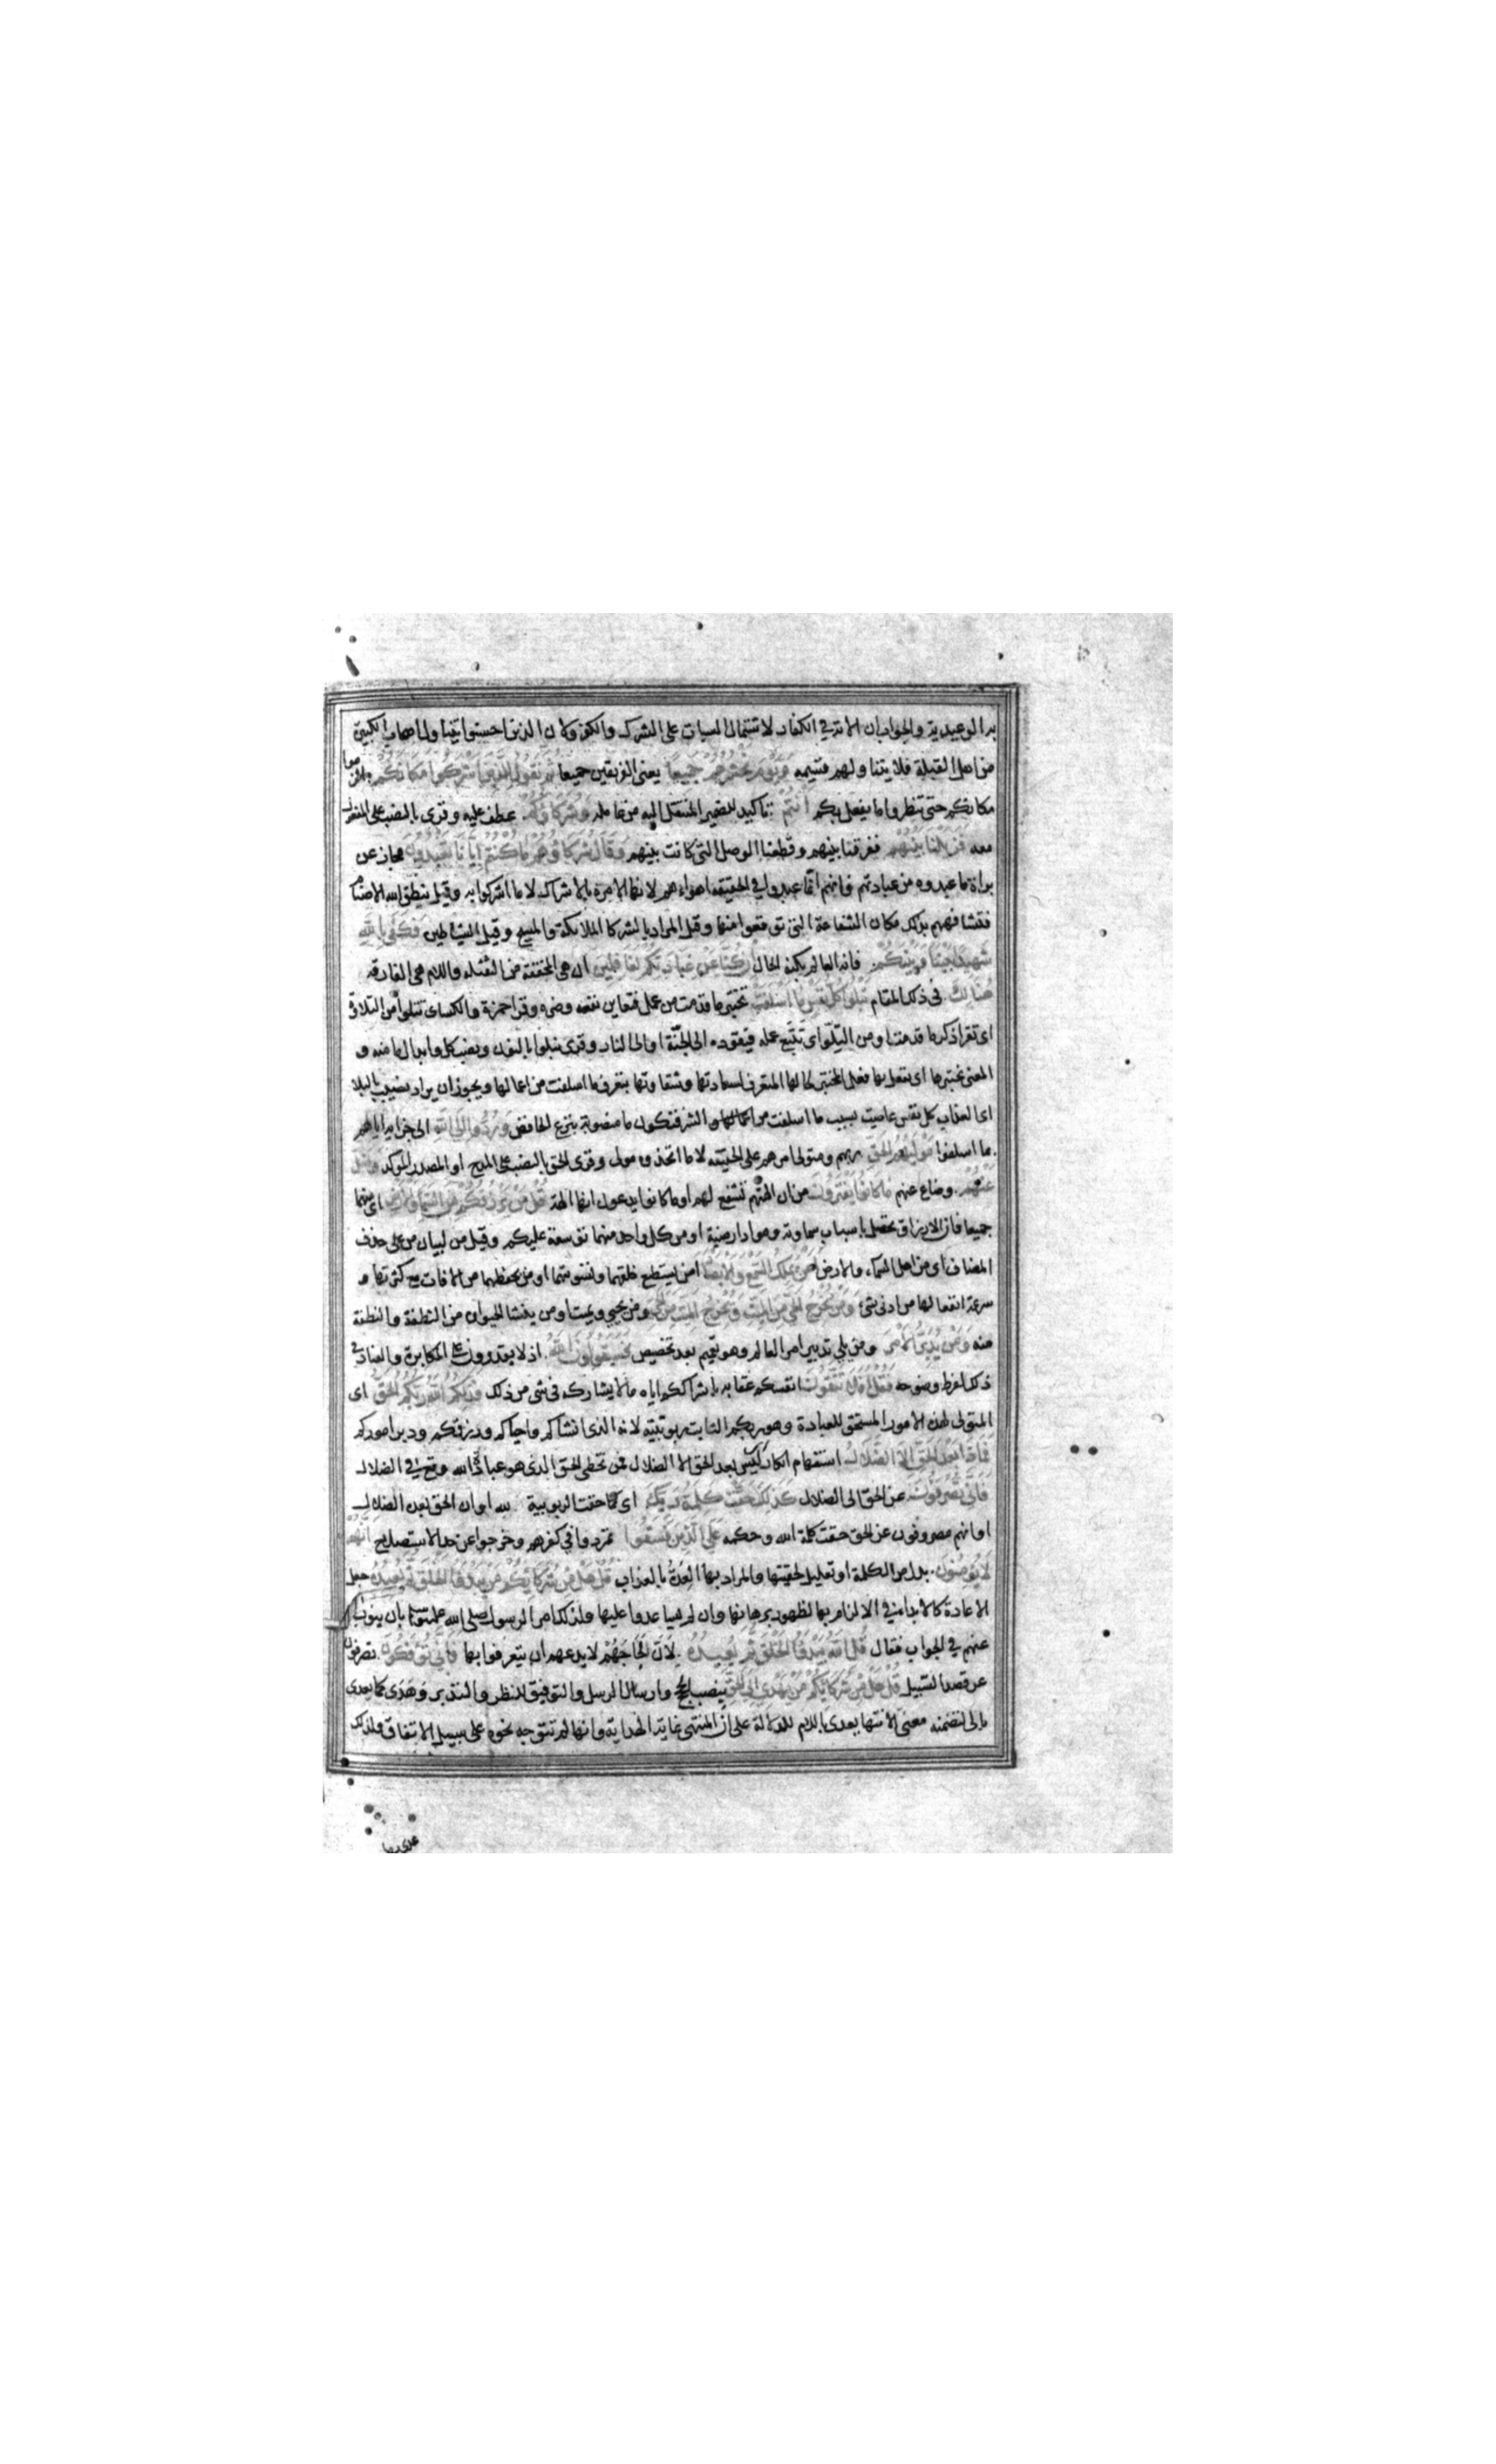 به الوعيدية والجواب ان الاية في الكفار لاشتمال السيات على الشرك والكفر ولان الذين احسنوا يتناول اصحاب الكبيرة
من اهل القبلة فلا يتناولهم قسيمه ويوم نحشرهم جميعا يعنى الفريقين جميعا ثم نقول للذين اشركوا مكانكم الزموا
مكانكم حتى تنظروا ما يفعل بكم انتم تاكيد للضمير المنتقل اليه من عامله وشركاؤكم عطف عليه وقرى بالنصب على المفعول
معه فزيلنا بينهم ففرقنا بينهم وقطعنا الوصل التى كانت بينهم وقال شركاؤهم ما كنتم ايانا تعبدون مجاز عن
براة ما عبدوه من عبادتهم فانهم انما عبدوا في الحقيقة اهواءهم لانها الامرة بالاشراك لا ما اشركوا به وقيل ينطق الله الاصنام
فتشافههم بذلك مكان الشفاعة التى توقعوا منها وقيل المراد بالشركا الملائكة والمسيح وقيل الشياطين فكفى بالله
شهيدا بيننا وبينكم فانه العالم بكنه الحال ان كنا عن عبادتكم لغافلين ان هى المخففة من الثقيلة واللام هى الفارقة
هنالك فى ذلك المقام تبلوا كل نفس ما اسلفت تختبر ما قدمت من عمل فتعاين نفعه وضره وقرا حمزة والكساى تتلوا من التلاوة
اى تقرا ذكر ما قدمت او من التلو اى تتبع عمله فيقوده الى الجنة او الى النار وقرى نبلوا بالنون ونصب كل وابدال ما منه و
المعنى نختبرها اى نفعل بها فعل المختبر لحالها المتعرف لسعادتها وشقاوتها بتعرف ما اسلفت من اعمالها ويجوز ان يراد نصيب بالبلا
اى العذاب كل نفس عاصية بسبب ما اسلفت من الشر فتكون ما منصوبة بنزع الخافض وردوا الى الله الى جزايه اياهم
بما اسلفوا مولاهم الحق ربهم ومتولى امرهم على الحقيقة لا ما اتخذوه مولى وقرى الحق بالنصب على المدح او المصدر الموكد وضل
عنهم وضاع عنهم ما كانوا يفترون من ان الهتهم تشفع لهم او ما كانوا يدعون انها الهة قل من يرزقكم من السماء والارض اى منهما
جميعا فان الارزاق تحصل باسباب سماوية ومواد ارضية او من كل واحد منهما توسعة عليكم وقيل من لبيان من على حذف
المضاف اى من اهل السماء والارض امن يملك السمع والابصار ام من يستطيع خلقهما وتسويتهما او من يحفظهما من الافات مع كثرتها و
سرعة انفعالها من ادنى شئ ومن يخرج الحي من الميت ويخرج الميت من الحي ومن يحيي ويميت او من ينشا الحيوان من النطفة والنطفة
منه ومن يدبر الامر ومن يلي تدبير امر العالم وهو تعميم بعد تخصيص فسيقولون الله اذ لا يقدرون على المكابرة والعناد في
ذلك لفرط وضوحه فقل افلا تتقون انفسكم عقابه باشراككم اياه ما لا يشاركه فى شى من ذلك فذلكم الله ربكم الحق اى
المتولى لهذه الامور المستحق للعبادة وهو ربكم الثابت ربوبيته لانه الذى انشاكم واحياكم ورزقكم ودبر اموركم
فماذا بعد الحق الا الضلال استفهام انكار اى ليس بعد الحق الا الضلال فمن تخطى الحق الذى هو عبادة الله وقع في الضلال
فانى تصرفون عن الحق الى الضلال كذلك حقت كلمة ربك اى كما حقت الربوبية لله او ان الحق بعده الضلال
او انهم مصروفون عن الحق حقت كلمة الله وحكمه على الذين فسقوا تمردوا في كفرهم وخرجوا عن حد الاستصلاح انهم
لا يؤمنون بدل من الكلمة او تعليل لحقيتها والمراد بها العدة بالعذاب قل هل من شركائكم من يبدؤا الخلق ثم يعيده جعل
الاعادة كالابدا في الالزام بها لظهور برهانها وان لم يساعدوا عليها ولذلك امر الرسول صلى الله عليه وسلم بان ينوب
عنهم في الجواب فقال قل الله يبدؤا الخلق ثم يعيده لان لجاجهم لا يدعهم ان يتعرفوا بها فانى تؤفكون تصرفون
عن قصد السبيل قل هل من شركائكم من يهدى الى الحق بنصب الحجج وارسال الرسل والتوفيق للنظر والتدبر وهدى كما يعدى
بالى لتضمنه معنى الانتها يعدى باللام للدلالة على ان المنتهى غاية الهداية وانها لم تتوجه نحوه على سبيل الاتفاق ولذلك